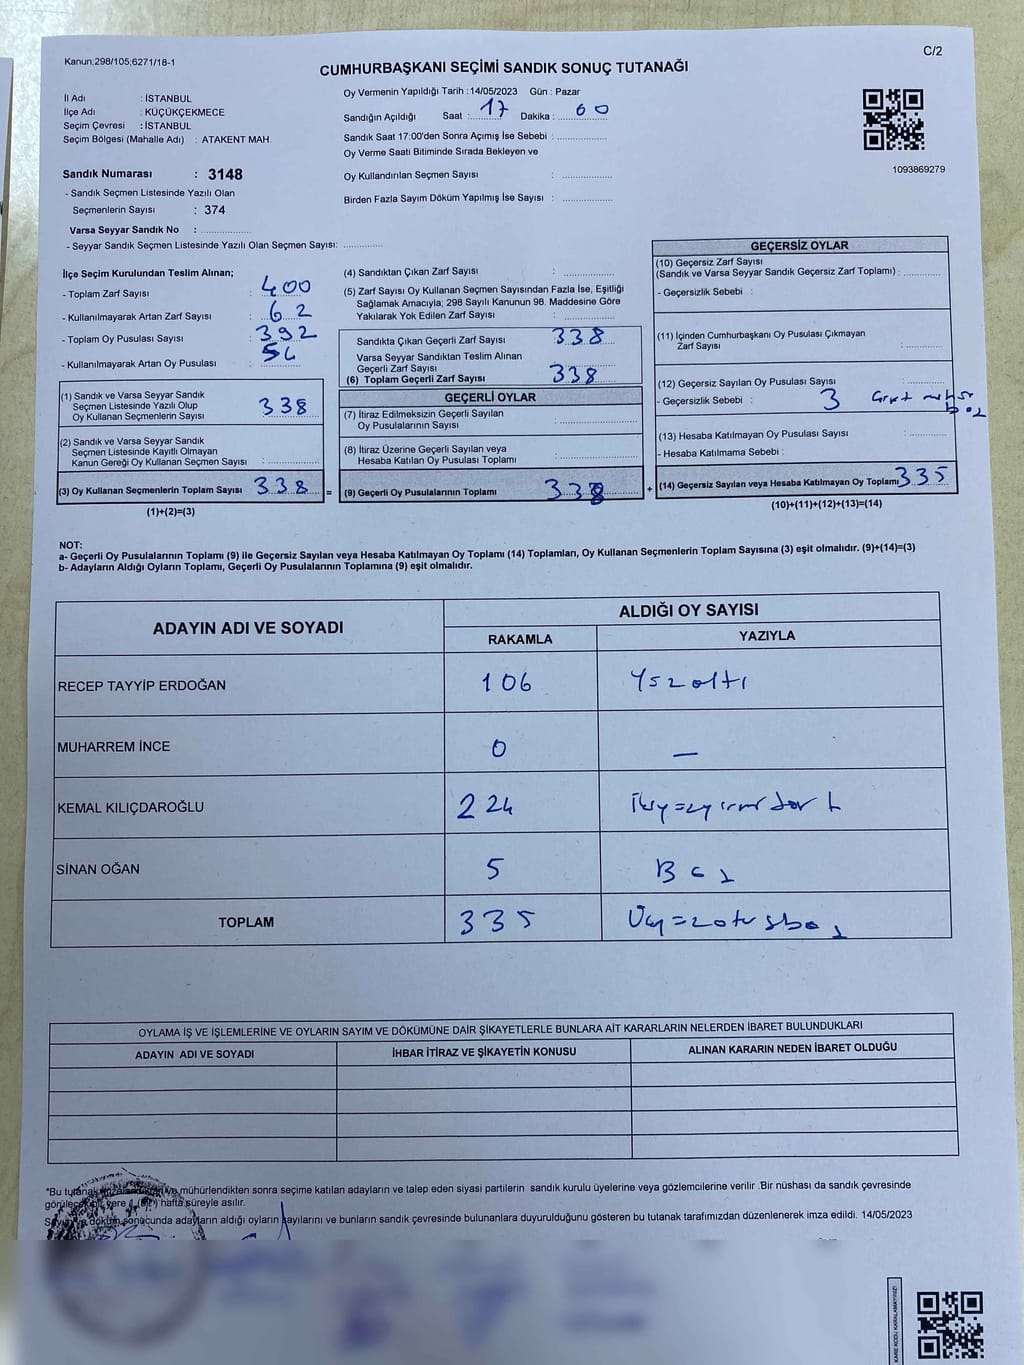 Kanun;298/105;6271/18-1
C/2
CUMHURBAŞKANI SEÇİMİ SANDIK SONUÇ TUTANAĞI
İl Adı : İSTANBUL
İlçe Adı : KÜÇÜKÇEKMECE
Seçim Çevresi : İSTANBUL
Seçim Bölgesi (Mahalle Adı) : ATAKENT MAH.
Oy Vermenin Yapıldığı Tarih :14/05/2023 Gün : Pazar
Sandığın Açıldığı Saat : 17 Dakika : 00
Sandık Saat 17:00'den Sonra Açımış İse Sebebi :
Oy Verme Saati Bitiminde Sırada Bekleyen ve
Oy Kullandırılan Seçmen Sayısı :
Birden Fazla Sayım Döküm Yapılmış İse Sayısı :
1093869279
Sandık Numarası : 3148
- Sandık Seçmen Listesinde Yazılı Olan
Seçmenlerin Sayısı : 374
Varsa Seyyar Sandık No :
- Seyyar Sandık Seçmen Listesinde Yazılı Olan Seçmen Sayısı:
İlçe Seçim Kurulundan Teslim Alınan;
- Toplam Zarf Sayısı : 400
- Kullanılmayarak Artan Zarf Sayısı : 62
- Toplam Oy Pusulası Sayısı : 392
- Kullanılmayarak Artan Oy Pusulası : 54
(1) Sandık ve Varsa Seyyar Sandık
Seçmen Listesinde Yazılı Olup
Oy Kullanan Seçmenlerin Sayısı : 338
(2) Sandık ve Varsa Seyyar Sandık
Seçmen Listesinde Kayıtlı Olmayan
Kanun Gereği Oy Kullanan Seçmen Sayısı :
(3) Oy Kullanan Seçmenlerin Toplam Sayısı 338 =
(1)+(2)=(3)
(4) Sandıktan Çıkan Zarf Sayısı :
(5) Zarf Sayısı Oy Kullanan Seçmen Sayısından Fazla İse, Eşitliği
Sağlamak Amacıyla; 298 Sayılı Kanunun 98. Maddesine Göre
Yakılarak Yok Edilen Zarf Sayısı :
Sandıkta Çıkan Geçerli Zarf Sayısı 338
Varsa Seyyar Sandıktan Teslim Alınan
Geçerli Zarf Sayısı :
(6) Toplam Geçerli Zarf Sayısı 338
GEÇERLİ OYLAR
(7) İtiraz Edilmeksizin Geçerli Sayılan
Oy Pusulalarının Sayısı :
(8) İtiraz Üzerine Geçerli Sayılan veya
Hesaba Katılan Oy Pusulası Toplamı :
(9) Geçerli Oy Pusulalarının Toplamı 338 +
GEÇERSİZ OYLAR
(10) Geçersiz Zarf Sayısı
(Sandık ve Varsa Seyyar Sandık Geçersiz Zarf Toplamı) :
- Geçersizlik Sebebi :
(11) İçinden Cumhurbaşkanı Oy Pusulası Çıkmayan
Zarf Sayısı :
(12) Geçersiz Sayılan Oy Pusulası Sayısı :
- Geçersizlik Sebebi : 3
(13) Hesaba Katılmayan Oy Pusulası Sayısı :
- Hesaba Katılmama Sebebi :
(14) Geçersiz Sayılan veya Hesaba Katılmayan Oy Toplamı 335
(10)+(11)+(12)+(13)=(14)
NOT:
a- Geçerli Oy Pusulalarının Toplamı (9) ile Geçersiz Sayılan veya Hesaba Katılmayan Oy Toplamı (14) Toplamları, Oy Kullanan Seçmenlerin Toplam Sayısına (3) eşit olmalıdır. (9)+(14)=(3)
b- Adayların Aldığı Oyların Toplamı, Geçerli Oy Pusulalarının Toplamına (9) eşit olmalıdır.
ADAYIN ADI VE SOYADI
ALDIĞI OY SAYISI
RAKAMLA YAZIYLA
RECEP TAYYİP ERDOĞAN 106 Yüzaltı
MUHARREM İNCE 0 —
KEMAL KILIÇDAROĞLU 224 ikiyüzyirmidört
SİNAN OĞAN 5 Beş
TOPLAM 335 Üçyüzotuzbeş
OYLAMA İŞ VE İŞLEMLERİNE VE OYLARIN SAYIM VE DÖKÜMÜNE DAİR ŞİKAYETLERLE BUNLARA AİT KARARLARIN NELERDEN İBARET BULUNDUKLARI
ADAYIN ADI VE SOYADI İHBAR İTİRAZ VE ŞİKAYETİN KONUSU ALINAN KARARIN NEDEN İBARET OLDUĞU
*Bu tutanak mühürlendikten sonra seçime katılan adayların ve talep eden siyasi partilerin sandık kurulu üyelerine veya gözlemcilerine verilir .Bir nüshası da sandık çevresinde
görülecek bir yere 1 (Bir) hafta süreyle asılır.
Sayım ve döküm sonucunda adayların aldığı oyların sayılarını ve bunların sandık çevresinde bulunanlara duyurulduğunu gösteren bu tutanak tarafımızdan düzenlenerek imza edildi. 14/05/2023
KARE KODU KARALAMAYINIZ!